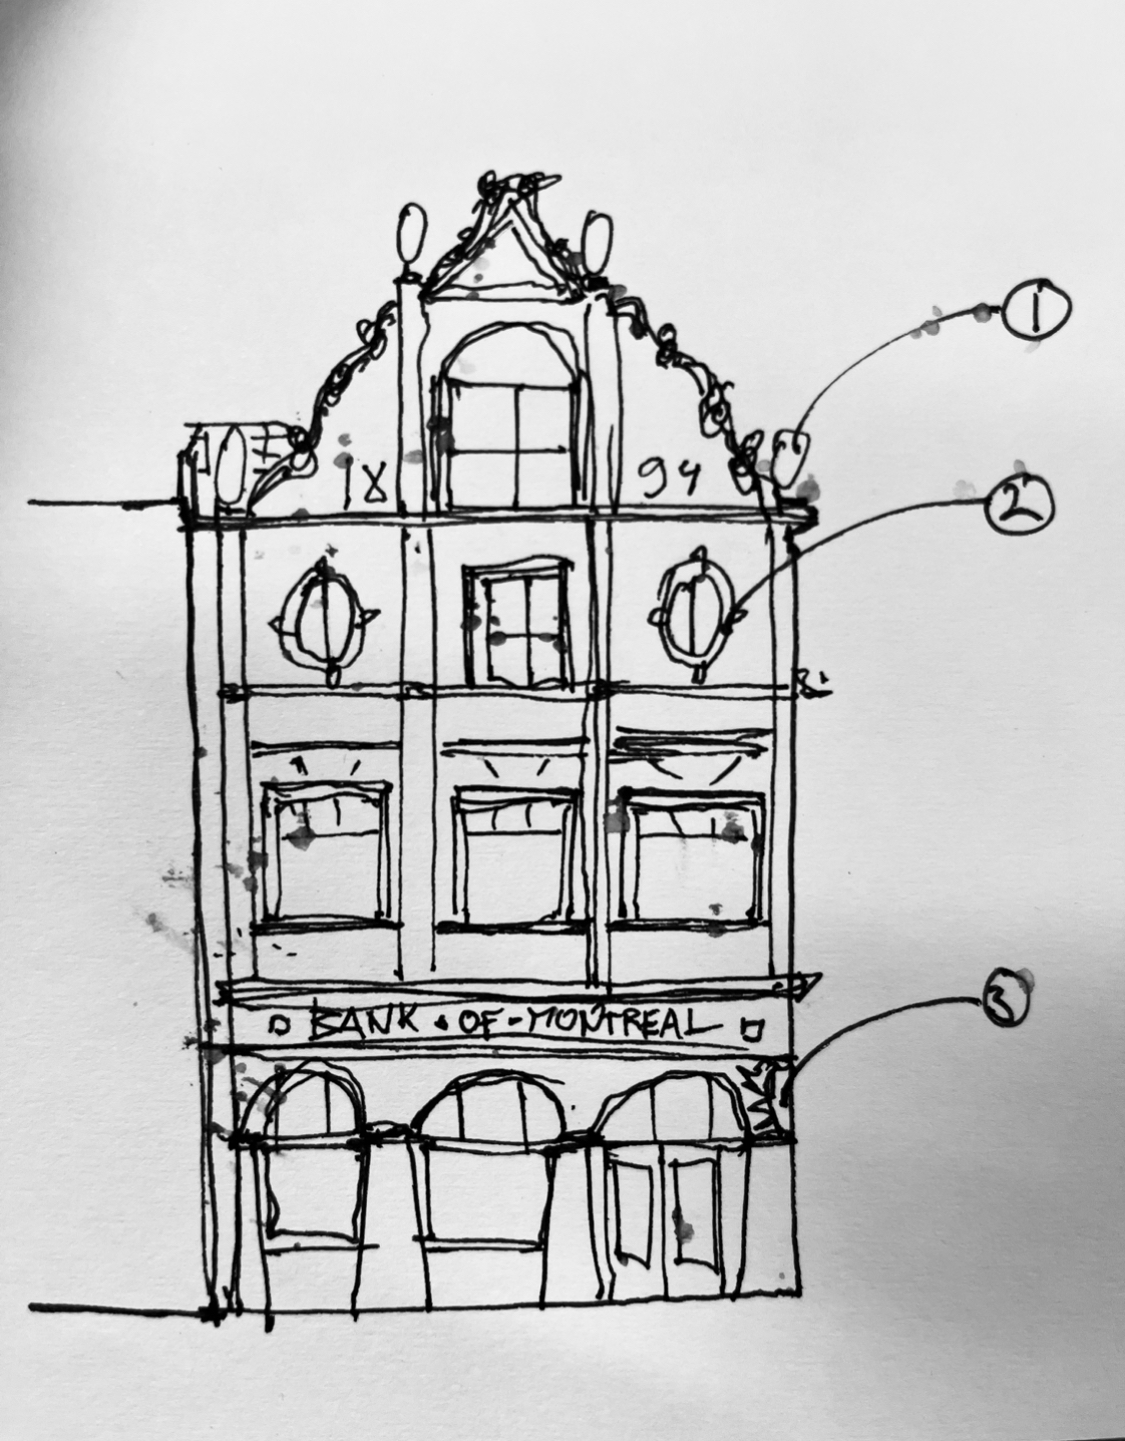 1
18 94
2
BANK • OF - MONTREAL
3